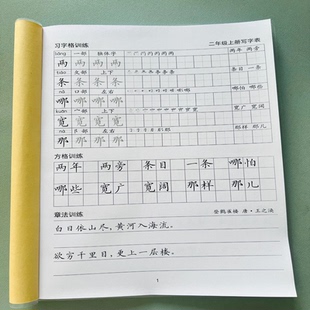 习字格训练 二年级上册写字表
liǎng 一部 独体字 两年 两旁
两 两 两 两
tiáo 夂部 上下 条目 一条
条 条 条 条
nǎ 口部 左右 哪怕 哪些
哪 哪 哪 哪
kuān 宀部 上下 宽广 宽阔
宽 宽 宽 宽
nà 阝部 左右 那样 那儿
那 那 那 那
方格训练
两年 两旁 条目 一条 哪怕
哪些 宽广 宽阔 那样 那儿
章法训练 登鹳雀楼 唐·王之涣
白日依山尽，黄河入海流。
欲穷千里目，更上一层楼。
1